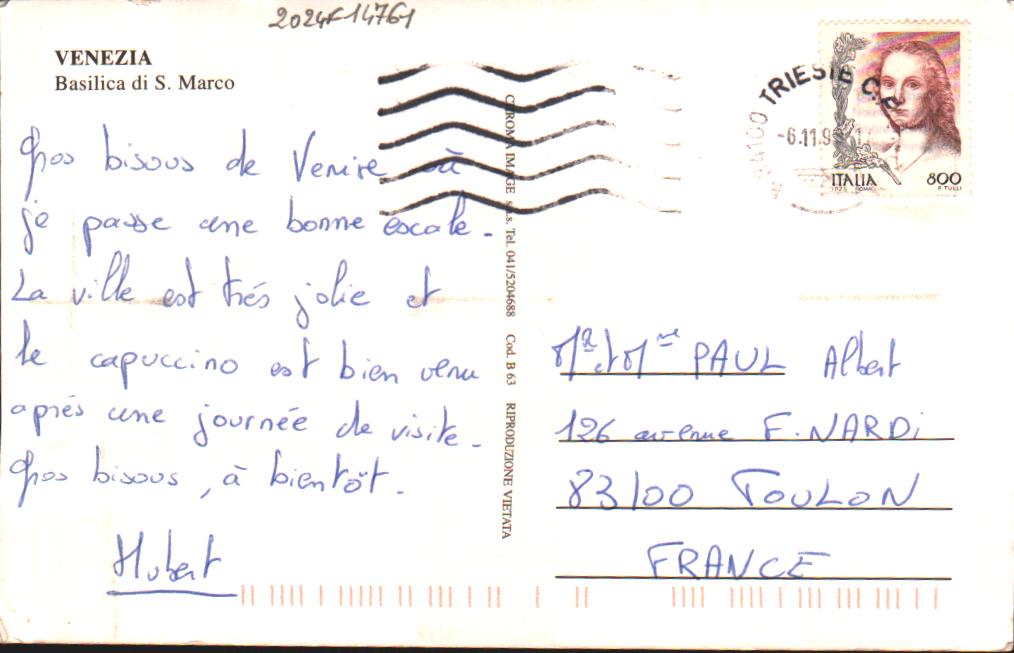 2024F14761
VENEZIA
Basilica di S. Marco
Gros bisous de Venise où
je passe une bonne escale.
La ville est très jolie et
le capuccino est bien venu
après une journée de visite.
Gros bisous, à bientôt.
Hubert
CHROMA IMAGE s.a.s. Tel. 041/5204688 Cod. B 63 RIPRODUZIONE VIETATA
34100 TRIESTE C.P.
-6.11.9
ITALIA 800
I.P.Z.S. ROMA F. TULLI
Mr et Mme PAUL Albert
126 avenue F. NARDi
83100 TOULON
FRANCE